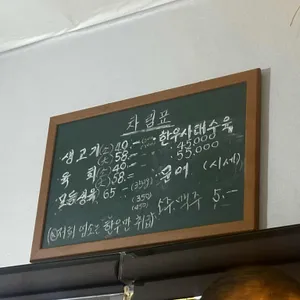 차림표
생고기 (소) 40.-
(대) 58.-
육회 (소) 40.-
(대) 58.-
모듬생육 65-
한우사태수육
45,000
55,000
문어 (시세)
소주.맥주 5.-
저희 업소는 한우만 취급